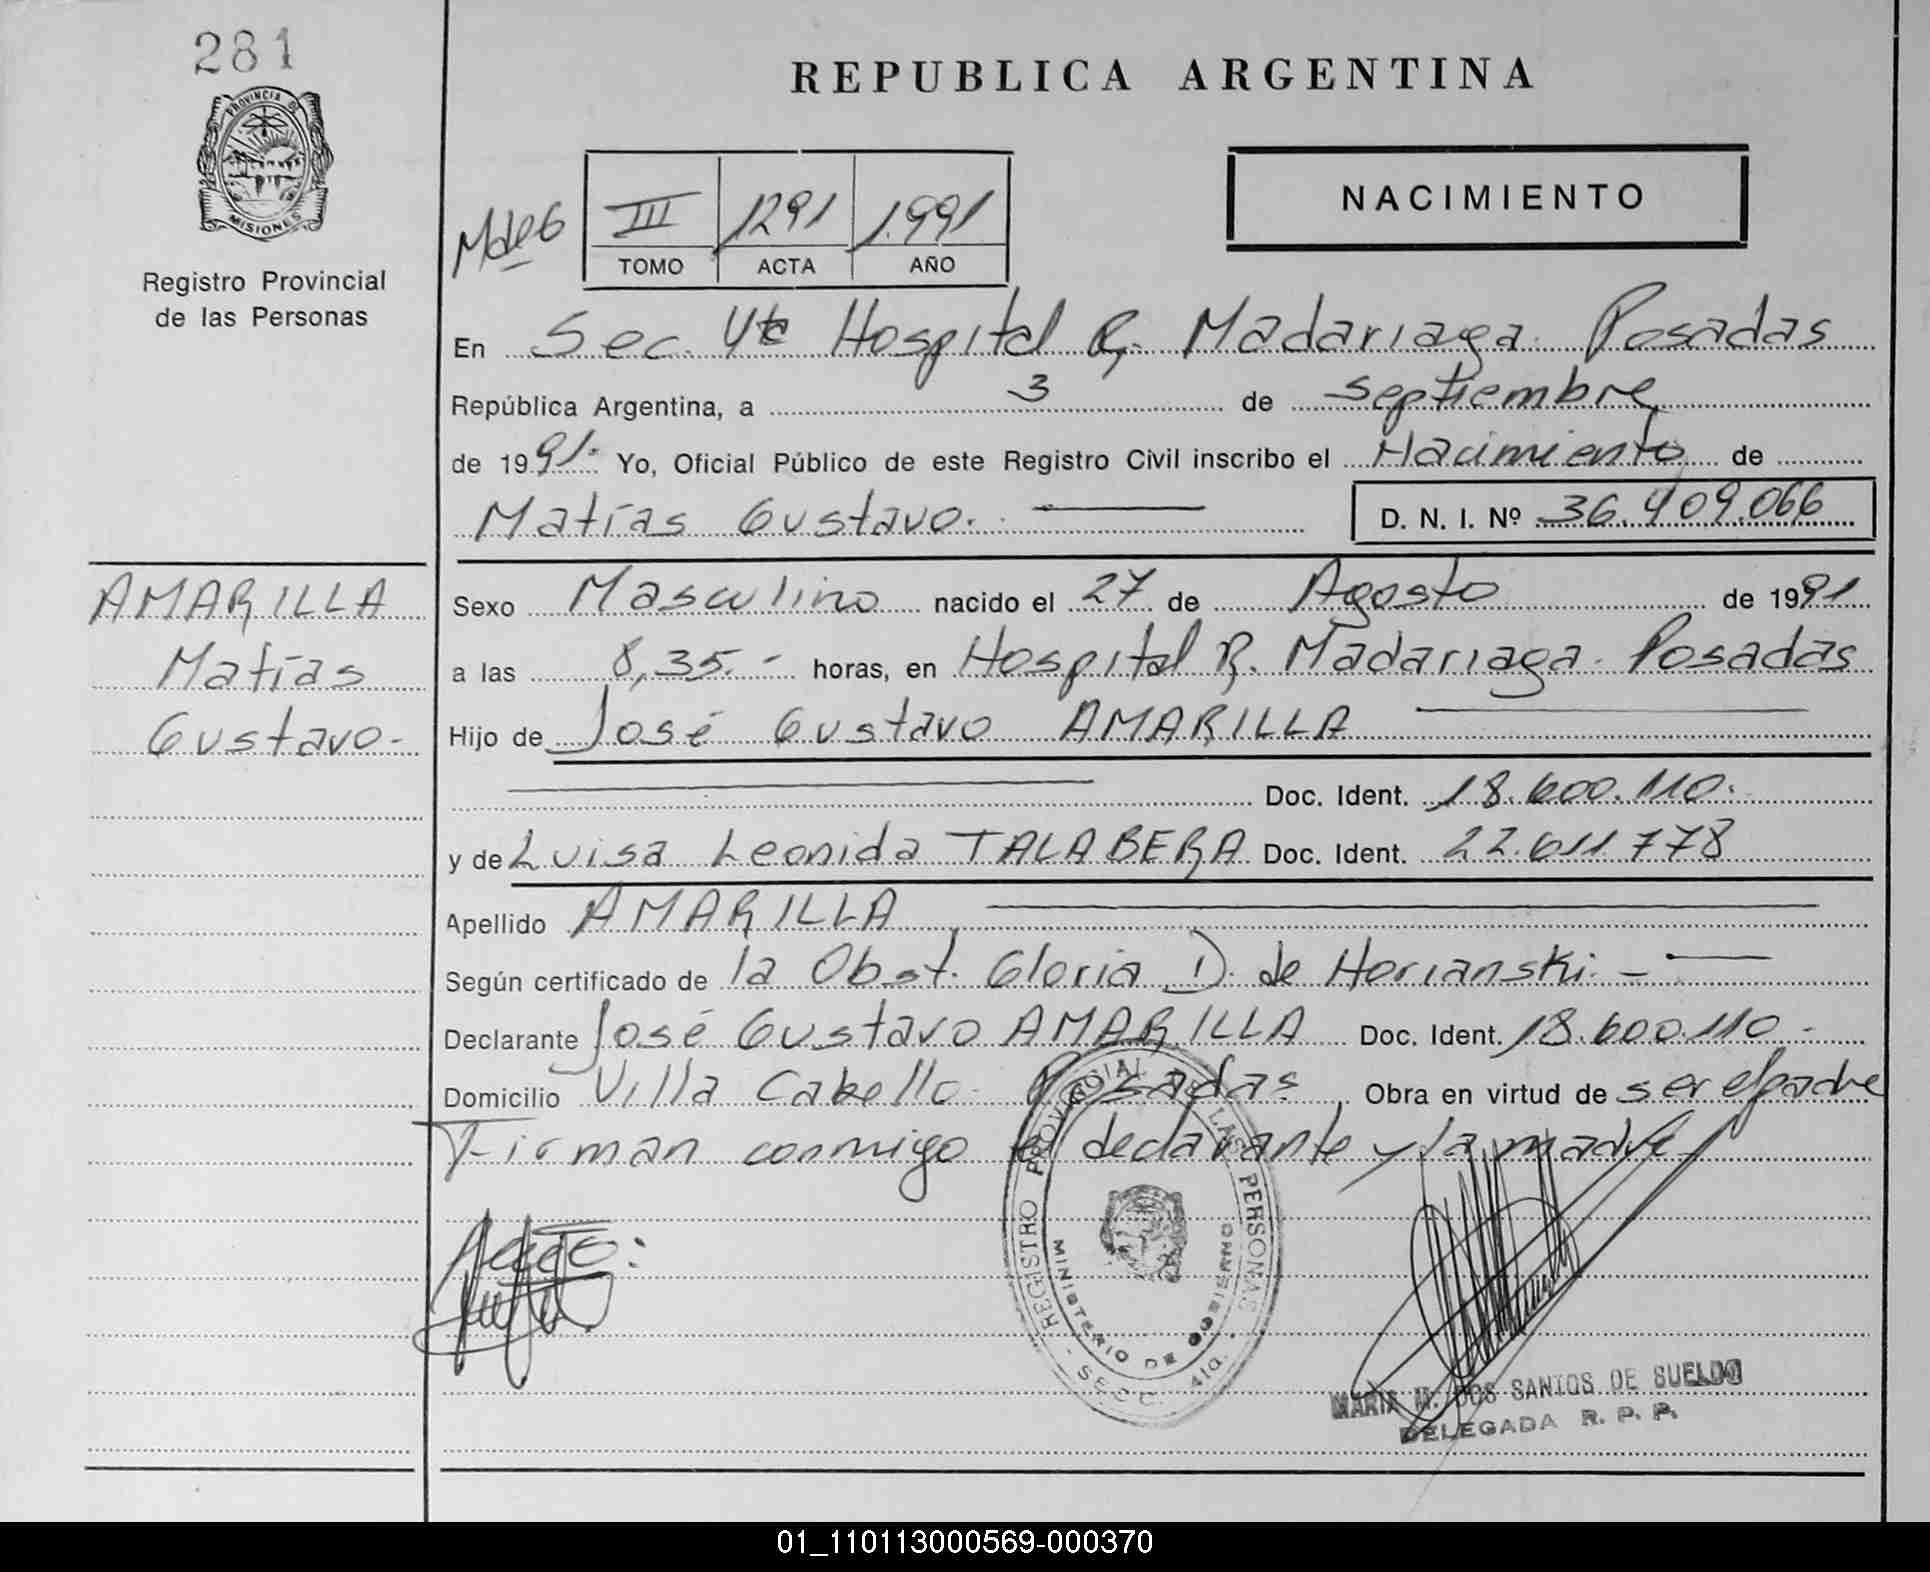 281
PROVINCIA DE
MISIONES
Registro Provincial
de las Personas
REPUBLICA ARGENTINA
NACIMIENTO
III 1291 1.991
TOMO ACTA AÑO
En Sec. 4ta Hospital R. Madariaga. Posadas
República Argentina, a 3 de septiembre
de 1991.- Yo, Oficial Público de este Registro Civil inscribo el Nacimiento de
Matías Gustavo. D. N. I. Nº 36.409.066
AMARILLA
Matías
Gustavo-
Sexo Masculino nacido el 27 de Agosto de 1991
a las 8,35.- horas, en Hospital R. Madariaga. Posadas
Hijo de José Gustavo AMARILLA
Doc. Ident. 18.600.110.
y de Luisa Leonida TALABERA Doc. Ident. 22.611.778
Apellido AMARILLA
Según certificado de la Obst. Gloria D. de Horianski.-
Declarante José Gustavo AMARILLA Doc. Ident. 18.600.110.-
Domicilio Villa Cabello- Posadas Obra en virtud de ser el padre
Firman conmigo el declarante y la madre
REGISTRO PROVINCIAL DE LAS PERSONAS
MINISTERIO DE GOBIERNO
- SECC. 4ta. -
MARIA M. DOS SANTOS DE SUELDO
DELEGADA R. P. P.
01_110113000569-000370